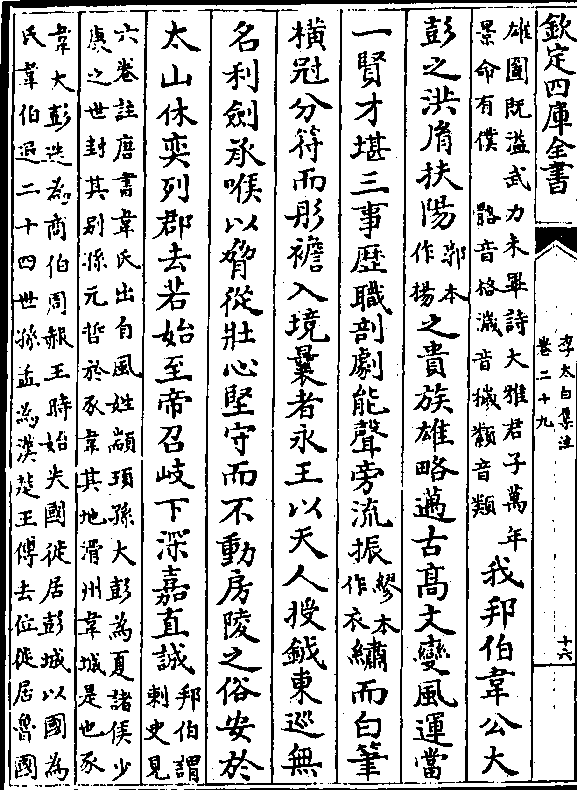 欽定四庫全書
李太白集注
卷二十九
十六
雄圖既溢武力未畢詩大雅君子萬年
景命有僕 謌音格濊音穢纇音類
我邦伯韋公大
彭之洪胄扶陽
鄒本
作揚
之貴族雄略邁古高文變風運當
一賢才堪三事歷職剖劇能聲旁流振
繆本
作衣
繡而白筆
橫冠分符而彤襜入境曩者永王以天人授鉞東巡無
名利劍承喉以脅從壯心堅守而不動房陵之俗安於
太山休奕列郡去若始至帝召岐下深嘉直誠
邦伯謂
刺史見
六卷註唐書韋氏出自風姓顓頊孫大彭為夏諸侯少
康之世封其別孫元哲於豕韋其地滑州韋城是也豕
韋大彭迭為商伯周赧王時始失國徙居彭城以國為
氏韋伯遐二十四世孫孟為漢楚王傅去位徙居魯國